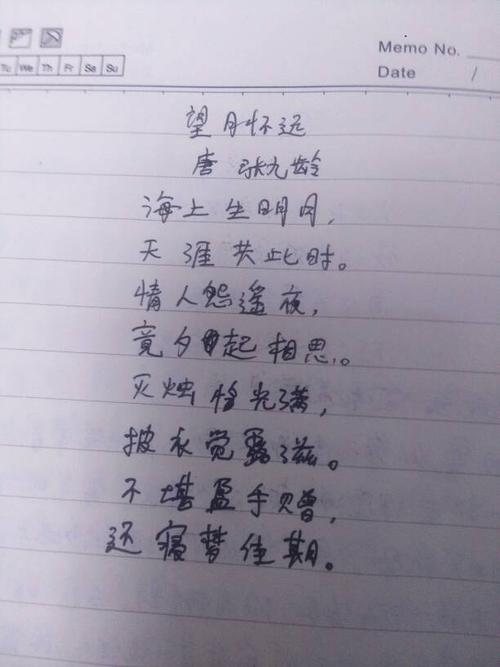 Memo No.
Tu We Th Fr Sa Su
Date /
望月怀远
唐 张九龄
海上生明月,
天涯共此时。
情人怨遥夜,
竟夕起相思。
灭烛怜光满,
披衣觉露滋。
不堪盈手赠,
还寝梦佳期。